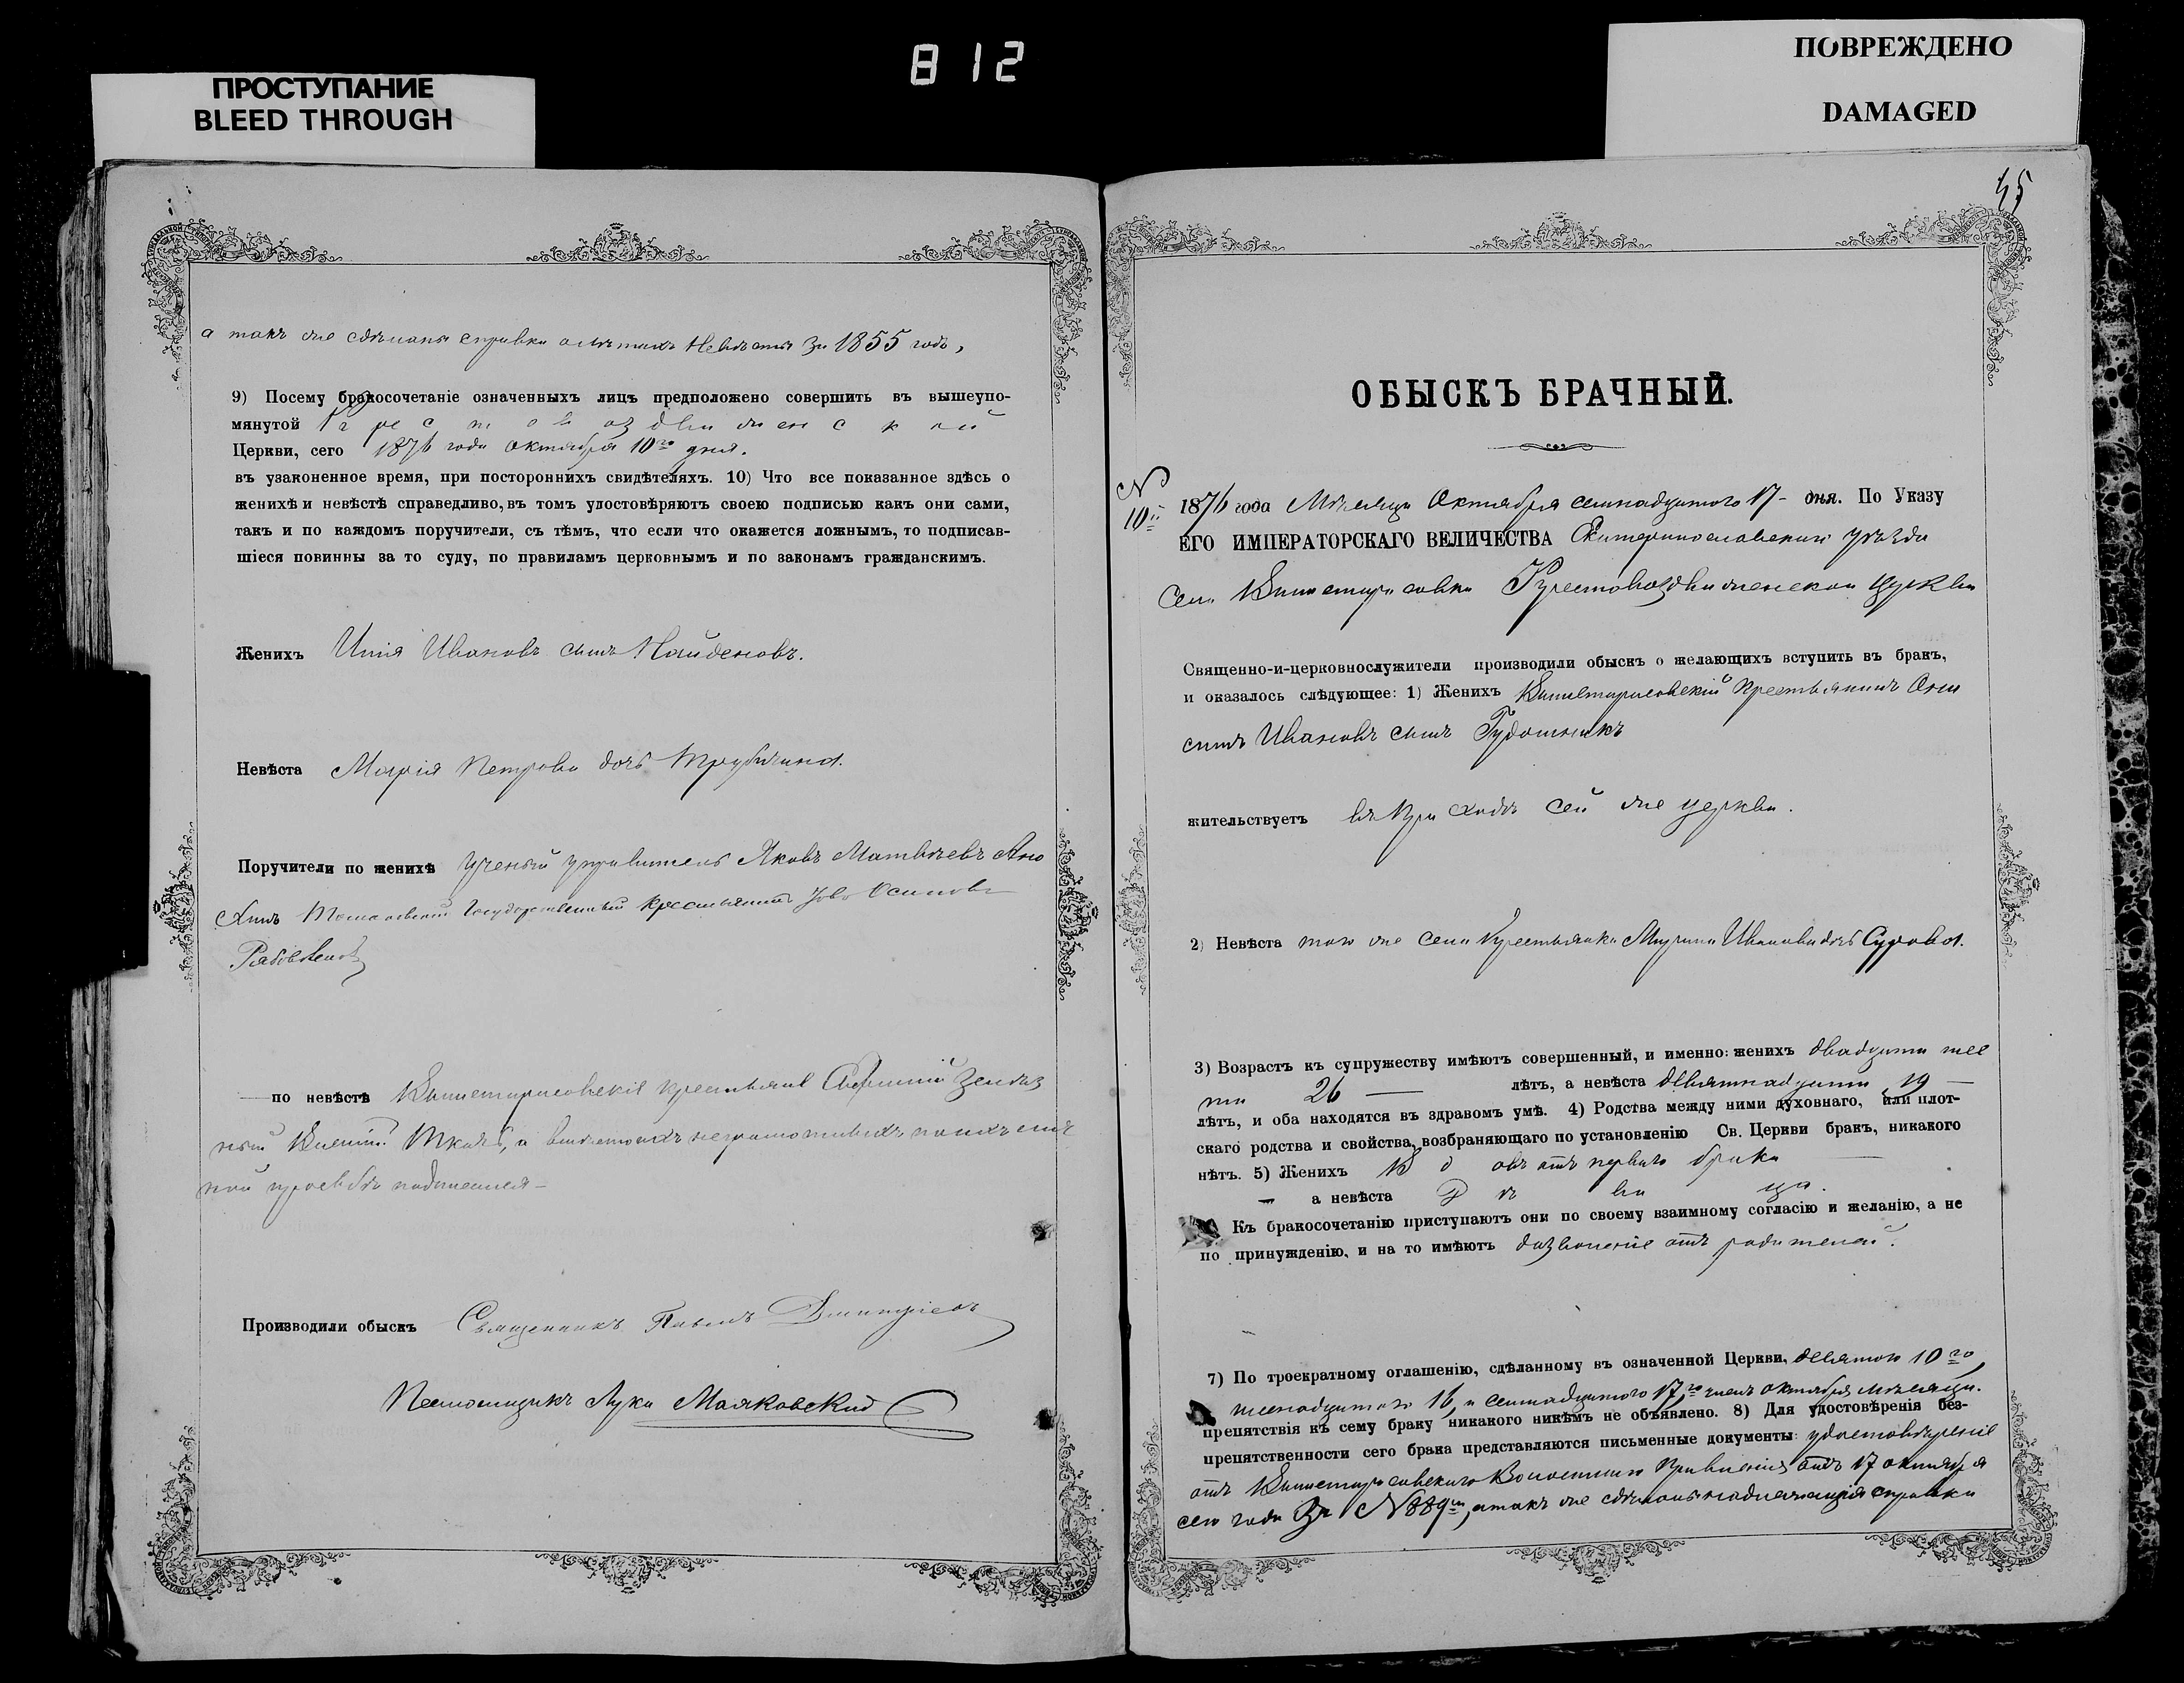 812
ПРОСТУПАНИЕ
BLEED THROUGH
ПОВРЕЖДЕНО
DAMAGED
а такъ же сдѣланы справки о лѣтахъ Невѣсты за 1855 годъ,
9) Посему бракосочетаніе означенныхъ лицъ предположено совершить въ вышеупо-
мянутой Крестовоздвиженской
Церкви, сего 1876 года Октября 10го дня.
въ узаконенное время, при постороннихъ свидѣтеляхъ. 10) Что все показанное здѣсь о
женихѣ и невѣстѣ справедливо, въ томъ удостовѣряютъ своею подписью какъ они сами,
такъ и по каждомъ поручители, съ тѣмъ, что если что окажется ложнымъ, то подписав-
шіеся повинны за то суду, по правиламъ церковнымъ и по законамъ гражданскимъ.
Женихъ Илія Ивановъ сынъ Найденовъ.
Невѣста Марія Петрова дочь
Поручители по женихѣ Яковъ Матвѣевъ
Государственный крестьянинъ Іовъ Осиповъ
по невѣстѣ крестьяне
Ткачъ, а вмѣсто ихъ неграмотныхъ по ихъ лич
ной просьбѣ
Производили обыскъ Священникъ Павелъ Димитріевъ
Псаломщикъ Лука Маяковскій
45
ОБЫСКЪ БРАЧНЫЙ.
N
10й 1876 года Мѣсяца Октября семнадцатого 17 - дня. По Указу
ЕГО ИМПЕРАТОРСКАГО ВЕЛИЧЕСТВА Екатеринославскаго уѣзда
села Крестовоздвиженской церкви
Священно-и-церковнослужители производили обыскъ о желающихъ вступить въ бракъ,
и оказалось слѣдующее: 1) Женихъ крестьянинъ
Ивановъ сынъ
жительствуетъ въ приходѣ сей же церкви.
2) Невѣста того же села Крестьянка Иванова дочь Сурова.
3) Возрастъ къ супружеству имѣютъ совершенный, и именно: женихъ двадцати шес
ти 26 — лѣтъ, а невѣста девятнадцати 19 —
лѣтъ, и оба находятся въ здравомъ умѣ. 4) Родства между ними духовнаго, или плот-
скаго родства и свойства, возбраняющаго по установленію Св. Церкви бракъ, никакого
нѣтъ. 5) Женихъ Вдовъ отъ перваго брака —
— а невѣста Дѣвица.
Къ бракосочетанію приступаютъ они по своему взаимному согласію и желанію, а не
по принужденію, и на то имѣютъ дозволеніе отъ родителей.
7) По троекратному оглашенію, сдѣланному въ означенной Церкви, 10го,
шеснадцатого 16, и семнадцатого 17го чиселъ октября мѣсяца.
препятствія къ сему браку никакого никѣмъ не объявлено. 8) Для удостовѣренія без-
препятственности сего брака представляются письменные документы: удостовѣреніе
отъ Волостного Правленія отъ 17 октября
сего года За N 889м, а такъ же сдѣланы надлежащія справки